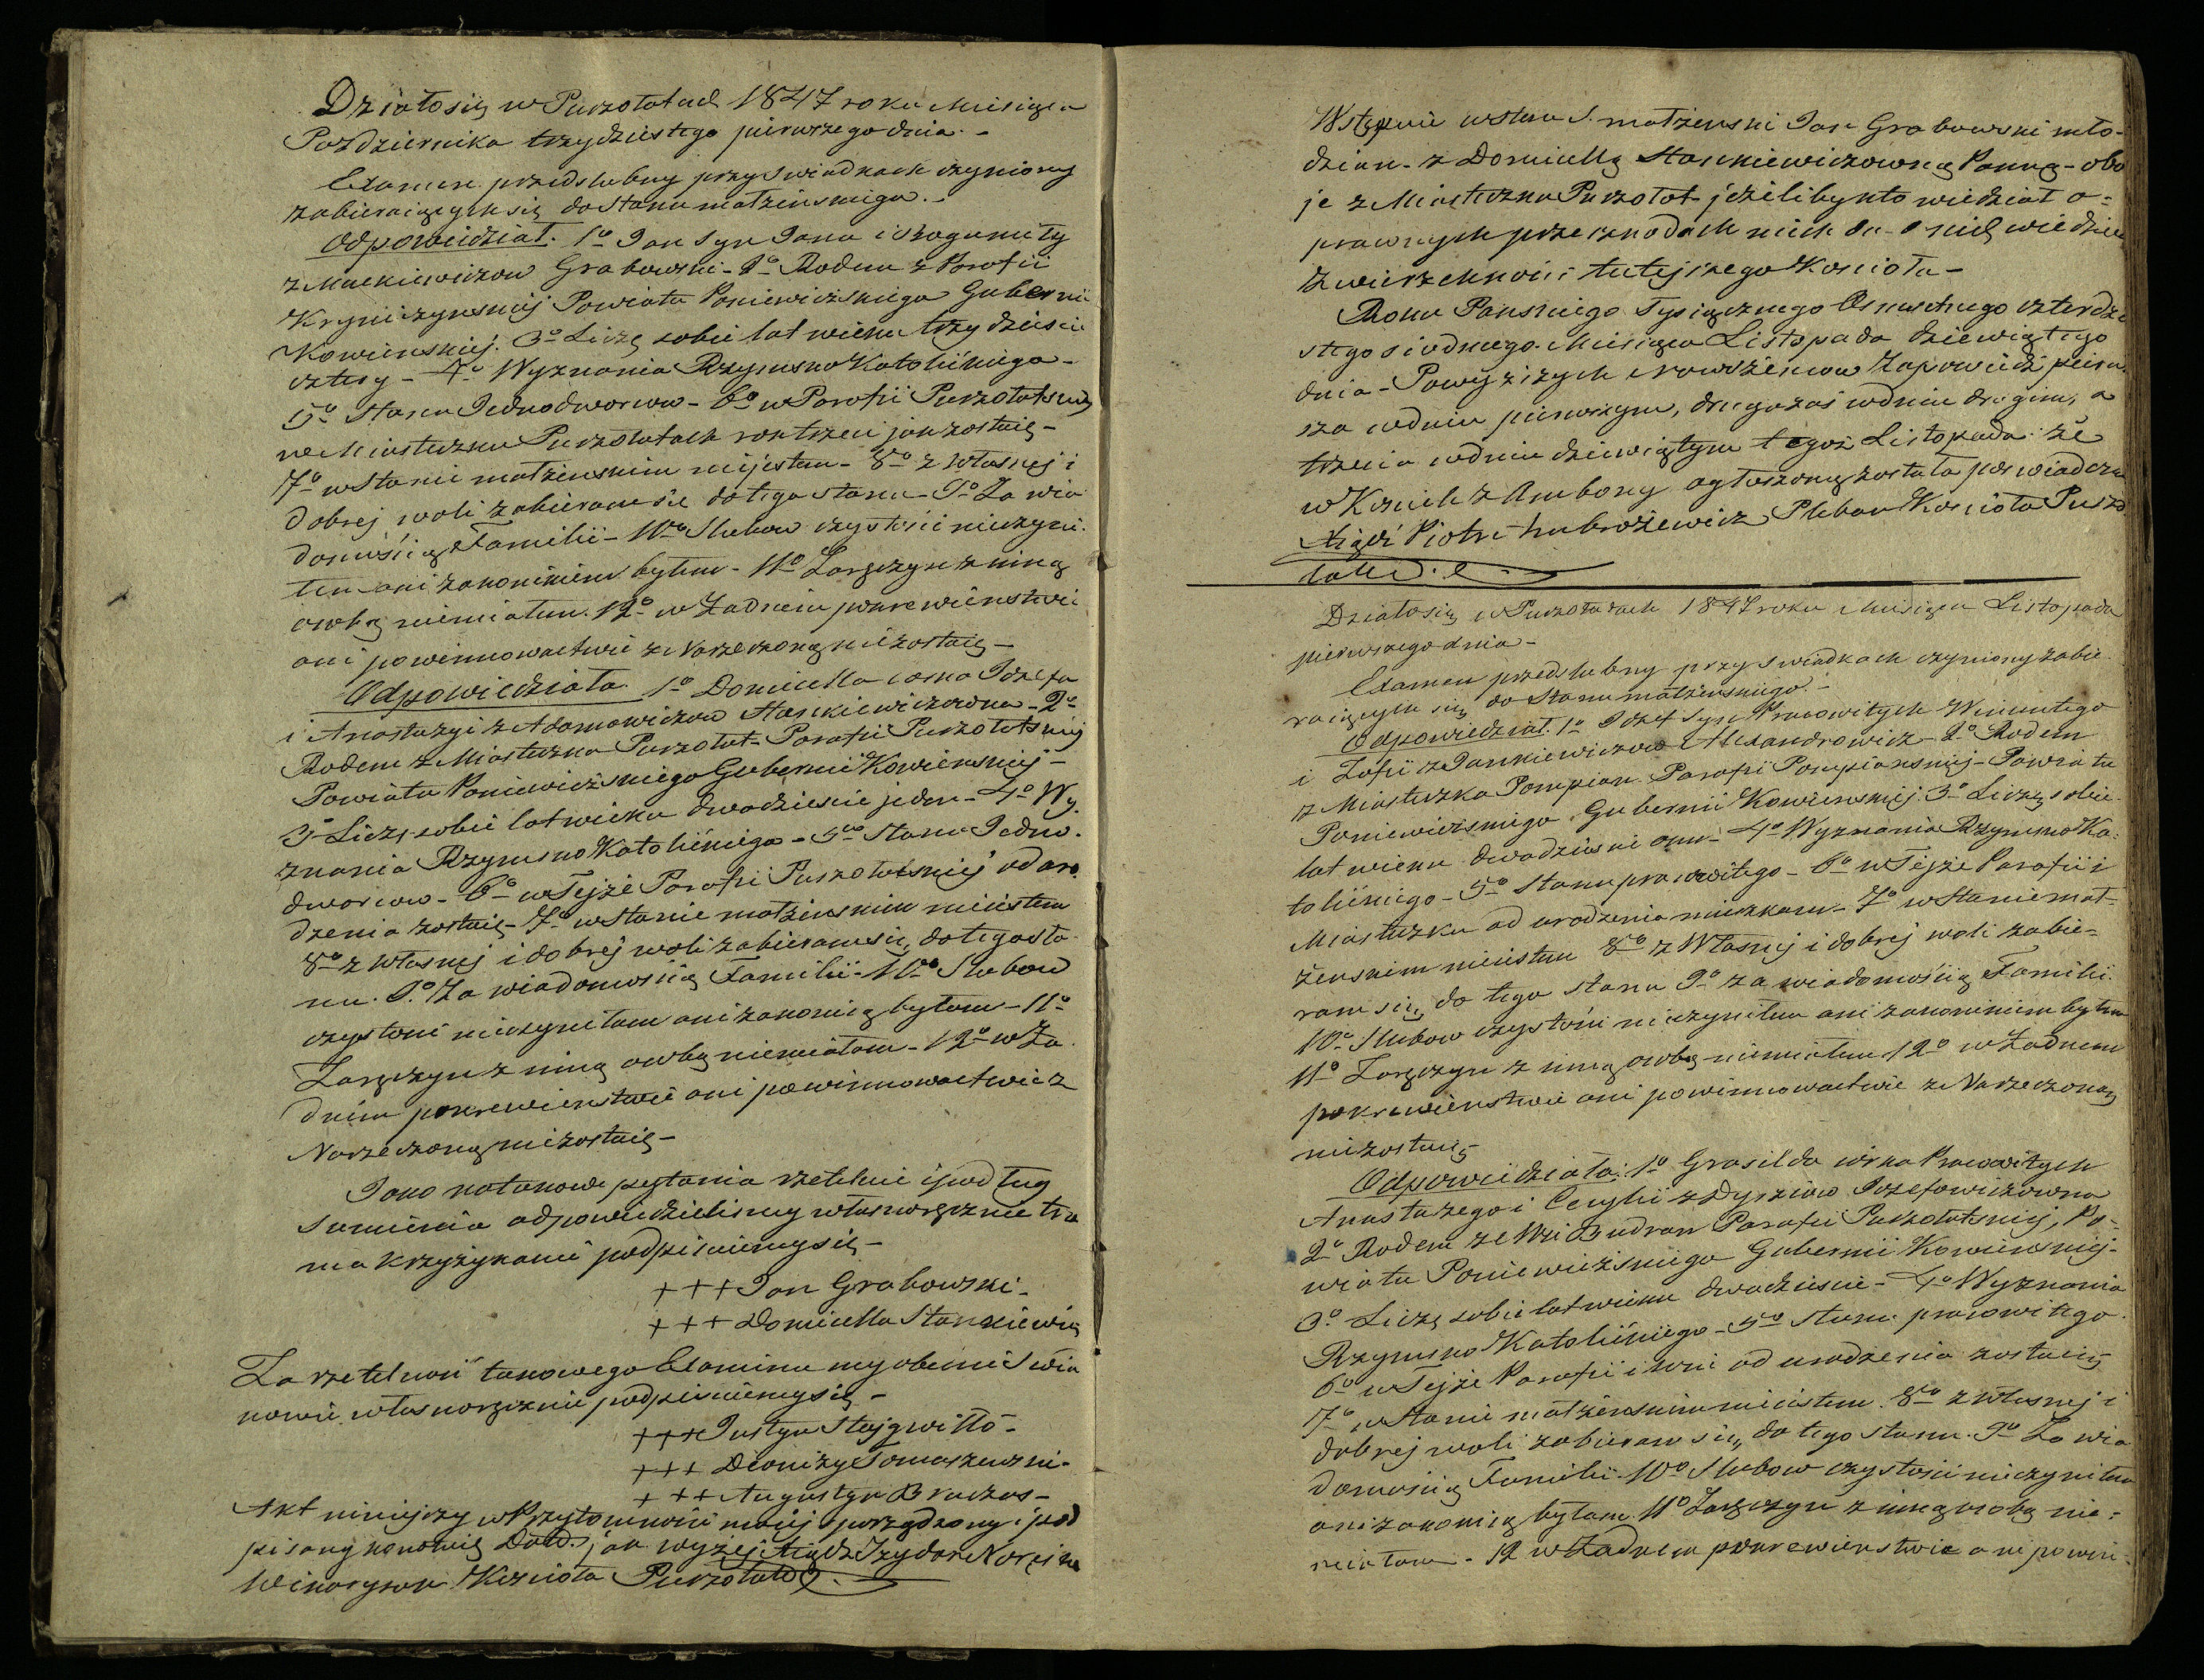 Działosię w Puszołatach 1847 roku Miesiąca
Pozdziernika trzydziestego pierwszego dnia. -
Examen przedslubny przy swiadkach czyniony
zabieraiących się do Stanu małzenskiego. -
Odpowiedział. 1o Jan syn Jana i Bogumiły
z Mackiewiczow Grabowski - 2o Rodem z Parafii
Powiatu Poniewiezskiego Gubernii
Kowienskiej. 3o Liczę sobie lat wieku trzydziescie
cztery - 4o Wyznania Rzymsko Katolickiego -
5o Stanu Jednodworcow - 6o w Parafii Puszołatskiej
w Miasteczku Puszołatach zostaię -
7o w Stanie małzenskim niejestem - 8o z własnej i
dobrej woli zabieram sie do tego stanu - 9o Za wia
domością Familii - 10o Slubow czystości nieczyni-
łem ani zakonikiem byłem - 11o Zaręczyn z inną
osobą niemiałem. 12o w Zadnem pokrewienstwie
ani powinnowactwie z Narzeczoną niezostaię -
Odpowiedziała. 1o Domicella corka Jozefa
i Anastazyi z Adamowiczow Stankiewiczowna - 2o
Rodem z Miasteczka Puszołat - Parafii Puszołatskiej
Powiatu Poniewiezskiego Gubernii Kowienskiej -
3o Liczę sobie lat wieku dwadziescie jeden - 4o Wy-
znania Rzymsko Katolickiego - 5o Stanu Jedno-
dworcow - 6o w Tejże Parafii Puszołatskiej od uro-
dzenia zostaię - 7o w Stanie małzenskim nieiestem
8o z własnej i dobrej woli zabieram się do tego sta-
nu. 9o Za wiadomością Familii - 10o Slubow
czystosci nieczyniłam ani zakonicą byłam - 11o
Zaręczyn z inną osobą niemiałam - 12o w Za-
dnim pokrewienstwie ani powinnowactwie z
Narzeczoną niezostaię -
Jako na takowe pytania rzetelnie i podług
Sumienia odpowiedzielismy własnoręcznie trze
ma krzyżykami podpisuiemysię -
+++ Jan Grabowski -
+++ Domicella Stankiewicz
Za rzetelność takowego Examinu my obecni Swia
kowie własnoręcznie podpisuiemysię -
+++ Justyn Stejgwiłło -
+++ Dionizy Tomaszewski -
+++ Augustyn Braczas -
Akt niniejszy w Przytomności moiej sporządzony i pod
pisany Datd. jak wyżej Xiądz Izydor
Wikaryusz Kościoła Puszołatsk.
Wstępuie w stan S. małzenski Jan Grabowski mło-
dzian - z Domicellą Stankiewiczowną Panną - obo
je z Miasteczka Puszołat jeżeliby kto wiedział o -
prawnych przeszkodach niech da o nich wiedziec
Zwierzchności tutejszego Kościoła -
Roku Panskiego Tysiącznego Osmsetnego czterdzie
stego siodmego Miesiąca Listopada dziewiątego
dnia - Powyzszych Nowożeńcow Zapowiedź pierw-
sza w dniu pierwszym, druga zaś w dniu drugim, a
trzecia w dniu dziewiątym tegoż Listopada że
w Kościele z Ambony ogłoszoną została poswiadczam
Xiądz Piotr Ambrożewicz Pleban Kościoła Puszo
łatsk.
Działosię w Puszołatach 1847 roku Miesiąca Listopada
pierwszego dnia -
Examen przedslubny przy swiadkach czyniony zabie-
raiących się do Stanu małzenskiego. -
Odpowiedział. 1o Jozef Syn Pracowitych Wincentego
i Zofii z Jankiewiczow Alexandrowicz - 2o Rodem
z Miasteczka Pompian Parafii Pompianskiej - Powiatu
Poniewiezskiego Gubernii Kowienskiej 3o Liczę sobie
lat wieku dwadziescie osm - 4o Wyznania Rzymsko Ka-
tolickiego - 5o Stanu pracowitego - 6o w Tejże Parafii i
Miasteczku od urodzenia mieszkam - 7o w Stanie mał-
żenskim nieiestem 8o z Własnej i dobrej woli zabie-
ram się do tego stanu 9o za wiadomością Familii.
10o Slubow czystości nieczyniłem ani zakonnikiem byłem
11o Zaręczyn z inną osobą niemiałem 12o w Zadnem
pokrewienstwie ani powinnowactwie z Narzeczoną
niezostaię -
Odpowiedziała: 1o Grasilda corka Pracowitych
Anastazego i Cecylii z Jozefowiczowna
2o Rodem ze Wsi Budran Parafii Puszołatskiej, Po-
wiatu Poniewieżskiego Gubernii Kowienskiej -
3o Liczę sobie lat wieku dwadziescie - 4o Wyznania
Rzymsko Katolickiego - 5o Stanu pracowitego
6o w Tejże Parafii i wsi od urodzenia zostaię
7o w Stanie małzenskim nieiestem. 8o z własnej i
dobrej woli zabieram się do tego stanu. 9o Za wia
domością Familii - 10o Slubow czystości nieczyniłam
ani zakonicą byłam. 11o Zaręczyn z inną osobą nie -
miałam - 12 w Zadnem pokrewienstwie ani powin-